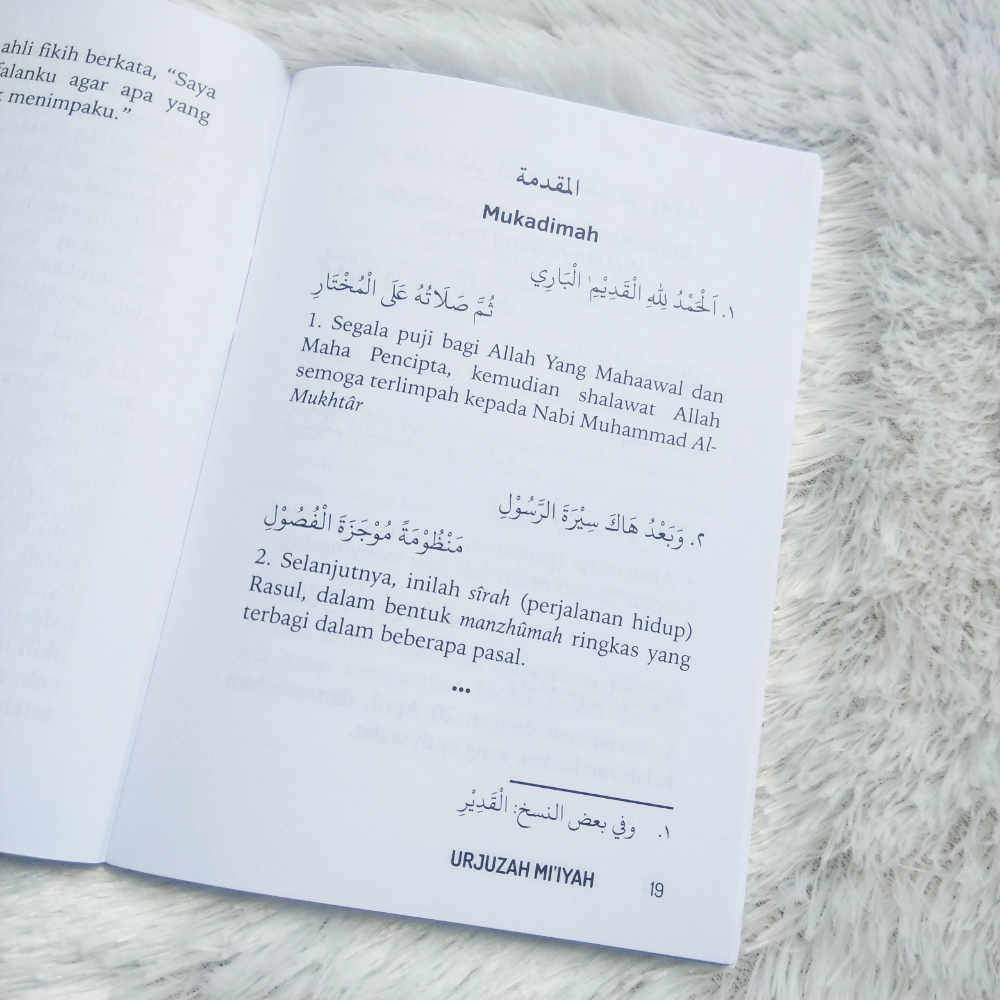 ahli fikih berkata, “Saya
falanku agar apa yang
menimpaku.”
المقدمة
Mukadimah
١. اَلْحَمْدُ لِلّٰهِ الْقَدِيْمِ١ الْبَارِي
ثُمَّ صَلَاتُهُ عَلَى الْمُخْتَارِ
1. Segala puji bagi Allah Yang Mahaawal dan
Maha Pencipta, kemudian shalawat Allah
semoga terlimpah kepada Nabi Muhammad Al-
Mukhtâr
٢. وَبَعْدُ هَاكَ سِيْرَةَ الرَّسُوْلِ
مَنْظُوْمَةً مُوْجَزَةَ الْفُصُوْلِ
2. Selanjutnya, inilah sîrah (perjalanan hidup)
Rasul, dalam bentuk manzhûmah ringkas yang
terbagi dalam beberapa pasal.
•••
١. وفي بعض النسخ: الْقَدِيْرِ
URJUZAH MI'IYAH 19